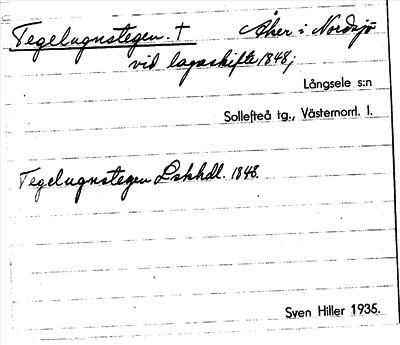 Tegelugnstegen. † Åker i Nordsjö
vid lagaskifte 1848;
Långsele s:n
Sollefteå tg., Västernorrl. l.
Tegelugnstegen Lskhdl. 1848.
Sven Hiller 1935.